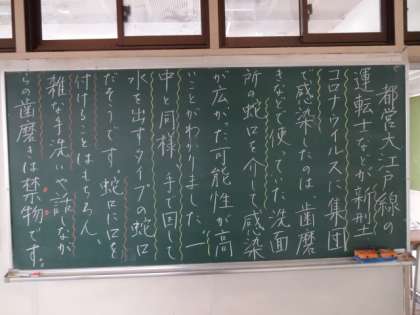 都営大江戸線の
運転士などが新型
コロナウイルスに集団
で感染したのは、歯磨
きなどで使っていた洗面
所の蛇口を介して感染
が広がった可能性が高
いことがわかりました。一
中と同様、手で回して
水を出すタイプの蛇口
だそうです。蛇口に口を
付けることはもちろん、
雑な手洗いや話しなが
らの歯磨きは禁物です。